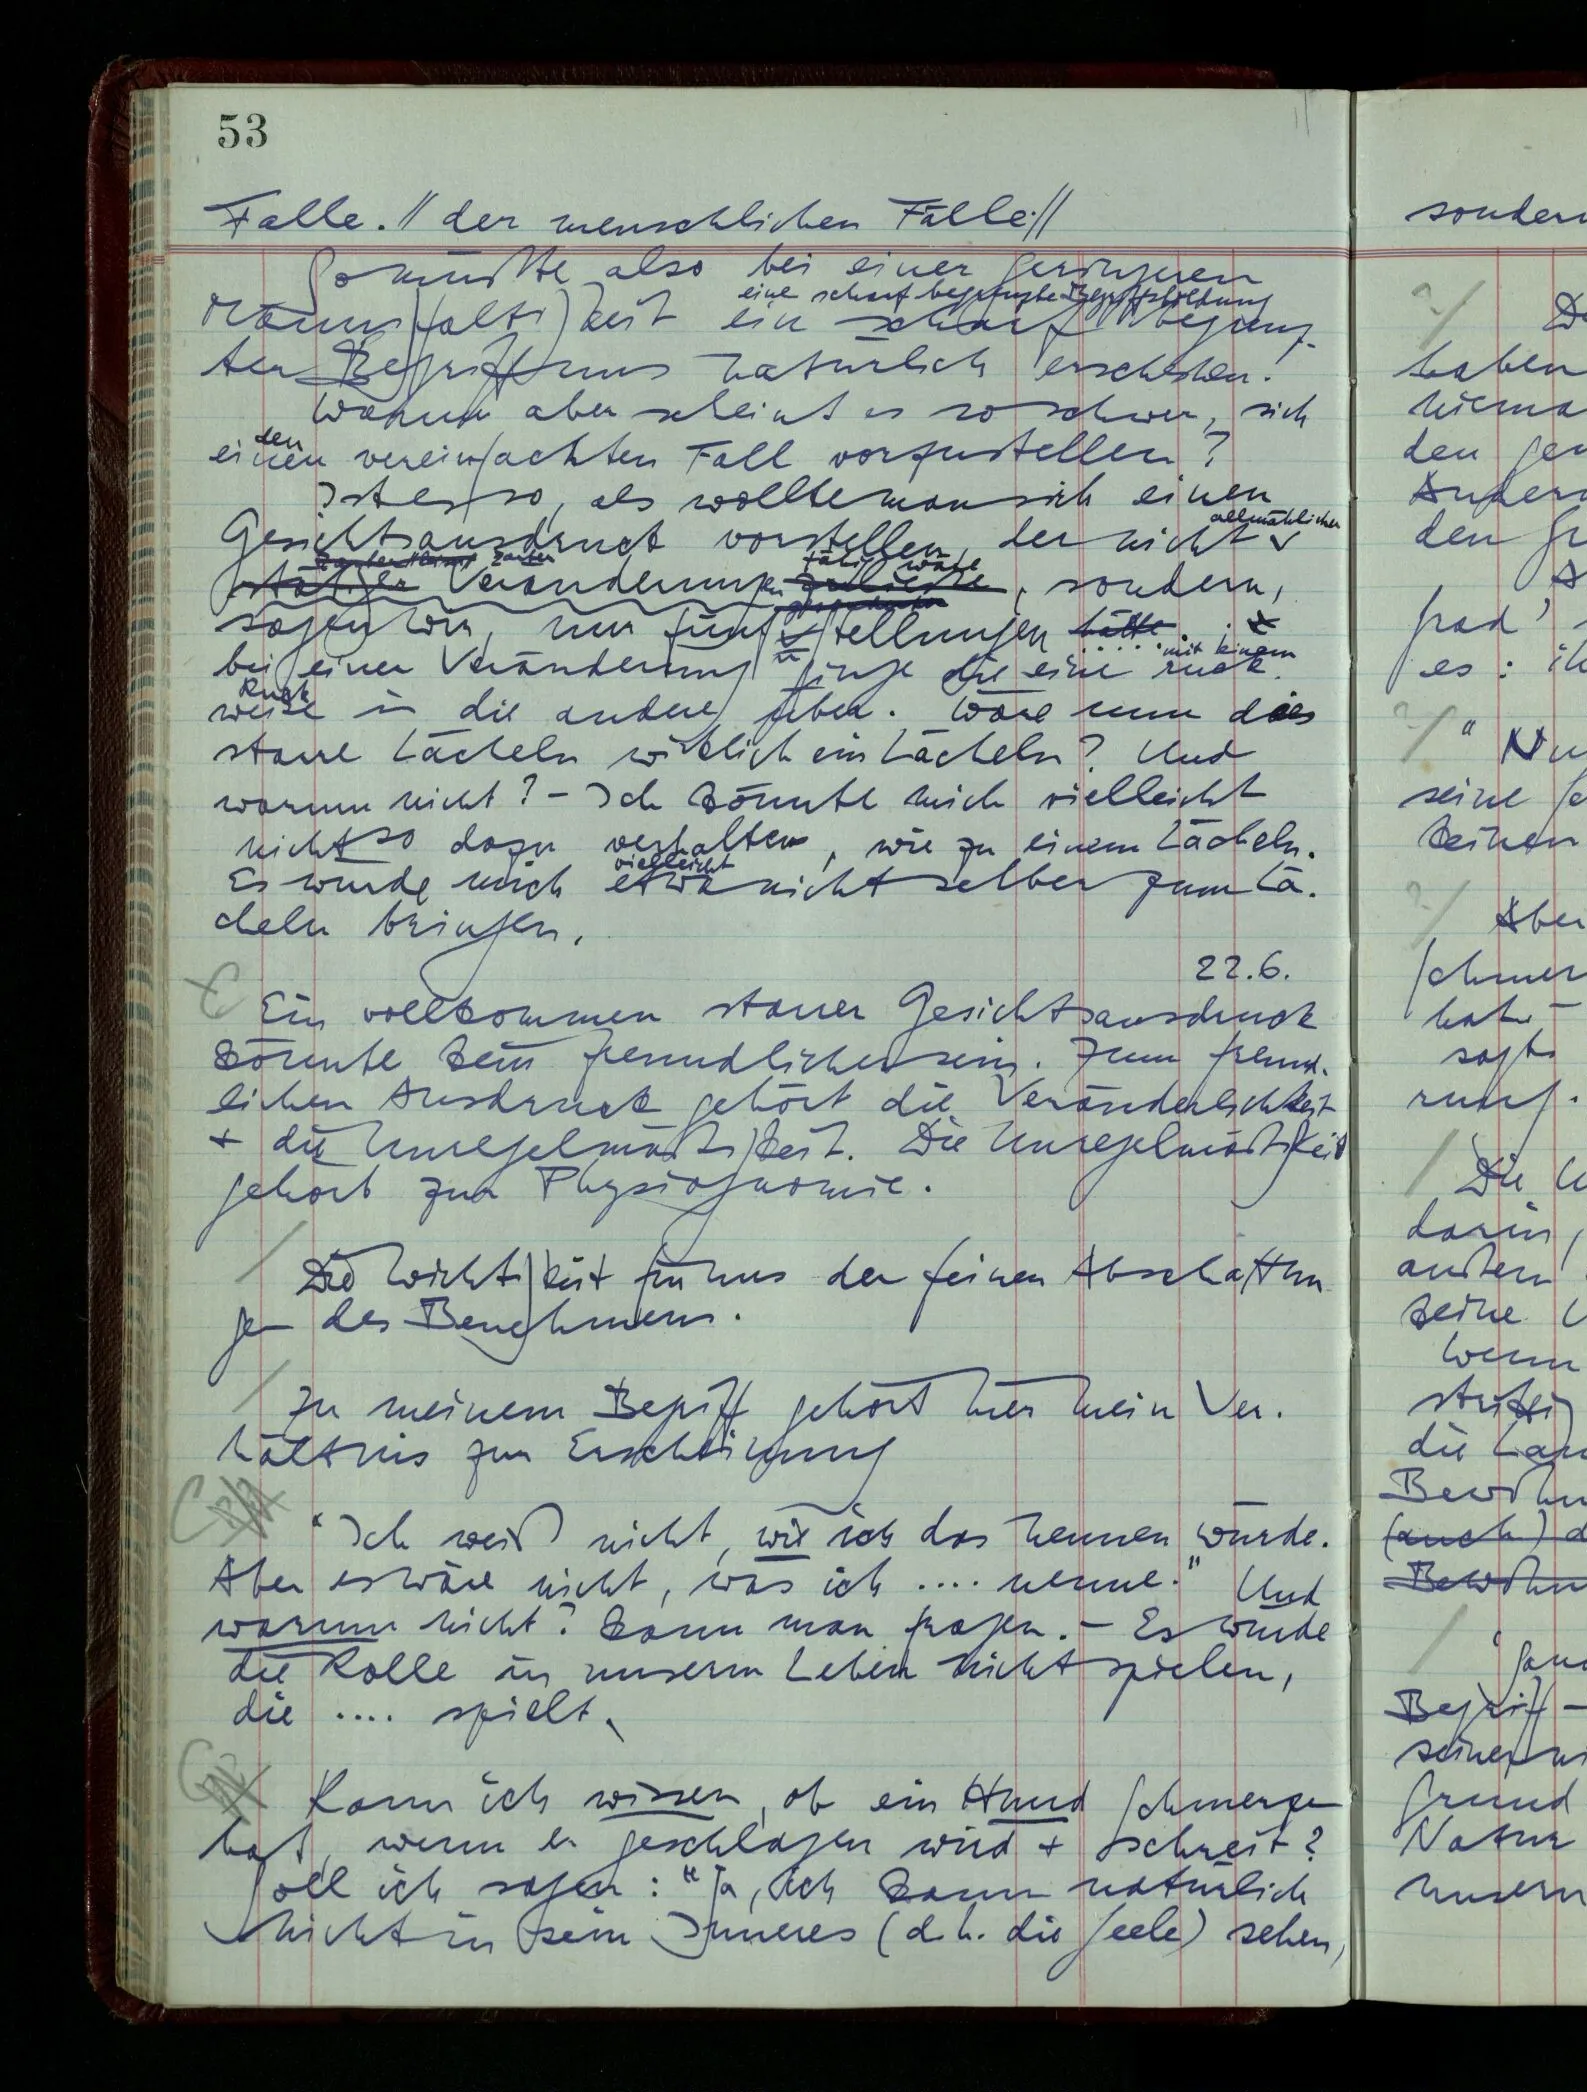 53
Falle. // der menschlichen Fälle. //
So müßte also bei einer geringeren
eine scharf begrenzte Begriffsbildung
Mannigfaltigkeit ein scharf begrenz-
ter Begriff uns natürlich erscheinen.
Warum aber scheint es so schwer, sich
den
einen vereinfachten Fall vorzustellen?
Ist es so, als wollte man sich einen
allmählicher
Gesichtsausdruck vorstellen, der nicht
zarter
fähig wäre
stätiger Veränderungen, sondern,
sagen wir, nur fünf Stellungen hätte.
mit einem
bei einer Veränderung ginge die eine ruck-
Ruck
weise in die andere über. Wäre nun dies
starre Lächeln wirklich ein Lächeln? Und
warum nicht? – Ich könnte mich vielleicht
nicht so dazu verhalten, wie zu einem Lächeln.
vielleicht
Es würde mich etwa nicht selber zum Lä-
cheln bringen.
22.6.
Ein vollkommen starrer Gesichtsausdruck
könnte kein freundlicher sein. Zum freund-
lichen Ausdruck gehört die Veränderlichkeit
+ die Unregelmäßigkeit. Die Unregelmäßigkeit
gehört zur Physiognomie.
/
Die Wichtigkeit für uns der feinen Abschattun
gen des Benehmens.
/ Zu meinem Begriff gehört hier mein Ver-
hältnis zur Erscheinung
C
"Ich weiß nicht, wie ich das nennen würde.
Aber es wäre nicht, was ich .... nenne." Und
warum nicht? kann man fragen. – Es würde
die Rolle in unserm Leben nicht spielen,
die .... spielt.
C
Kann ich wissen, ob ein Hund Schmerzen
hat, wenn er geschlagen wird + schreit?
Soll ich sagen: "Ja, ich kann natürlich
nicht in sein Inneres (d.h. die Seele) sehen,
sondern
?/
haben
niema
den
Andern
den
es: ih
?/ "Nu
seine
keinen
?/ Aber
Schmer
hat –
sagt
rung.
/ Die
darin,
andern
keine
Wenn
die
Bewohn
(auch) d
Bewohn
/
Begriff –
seiner
Grund
Natur
unsern